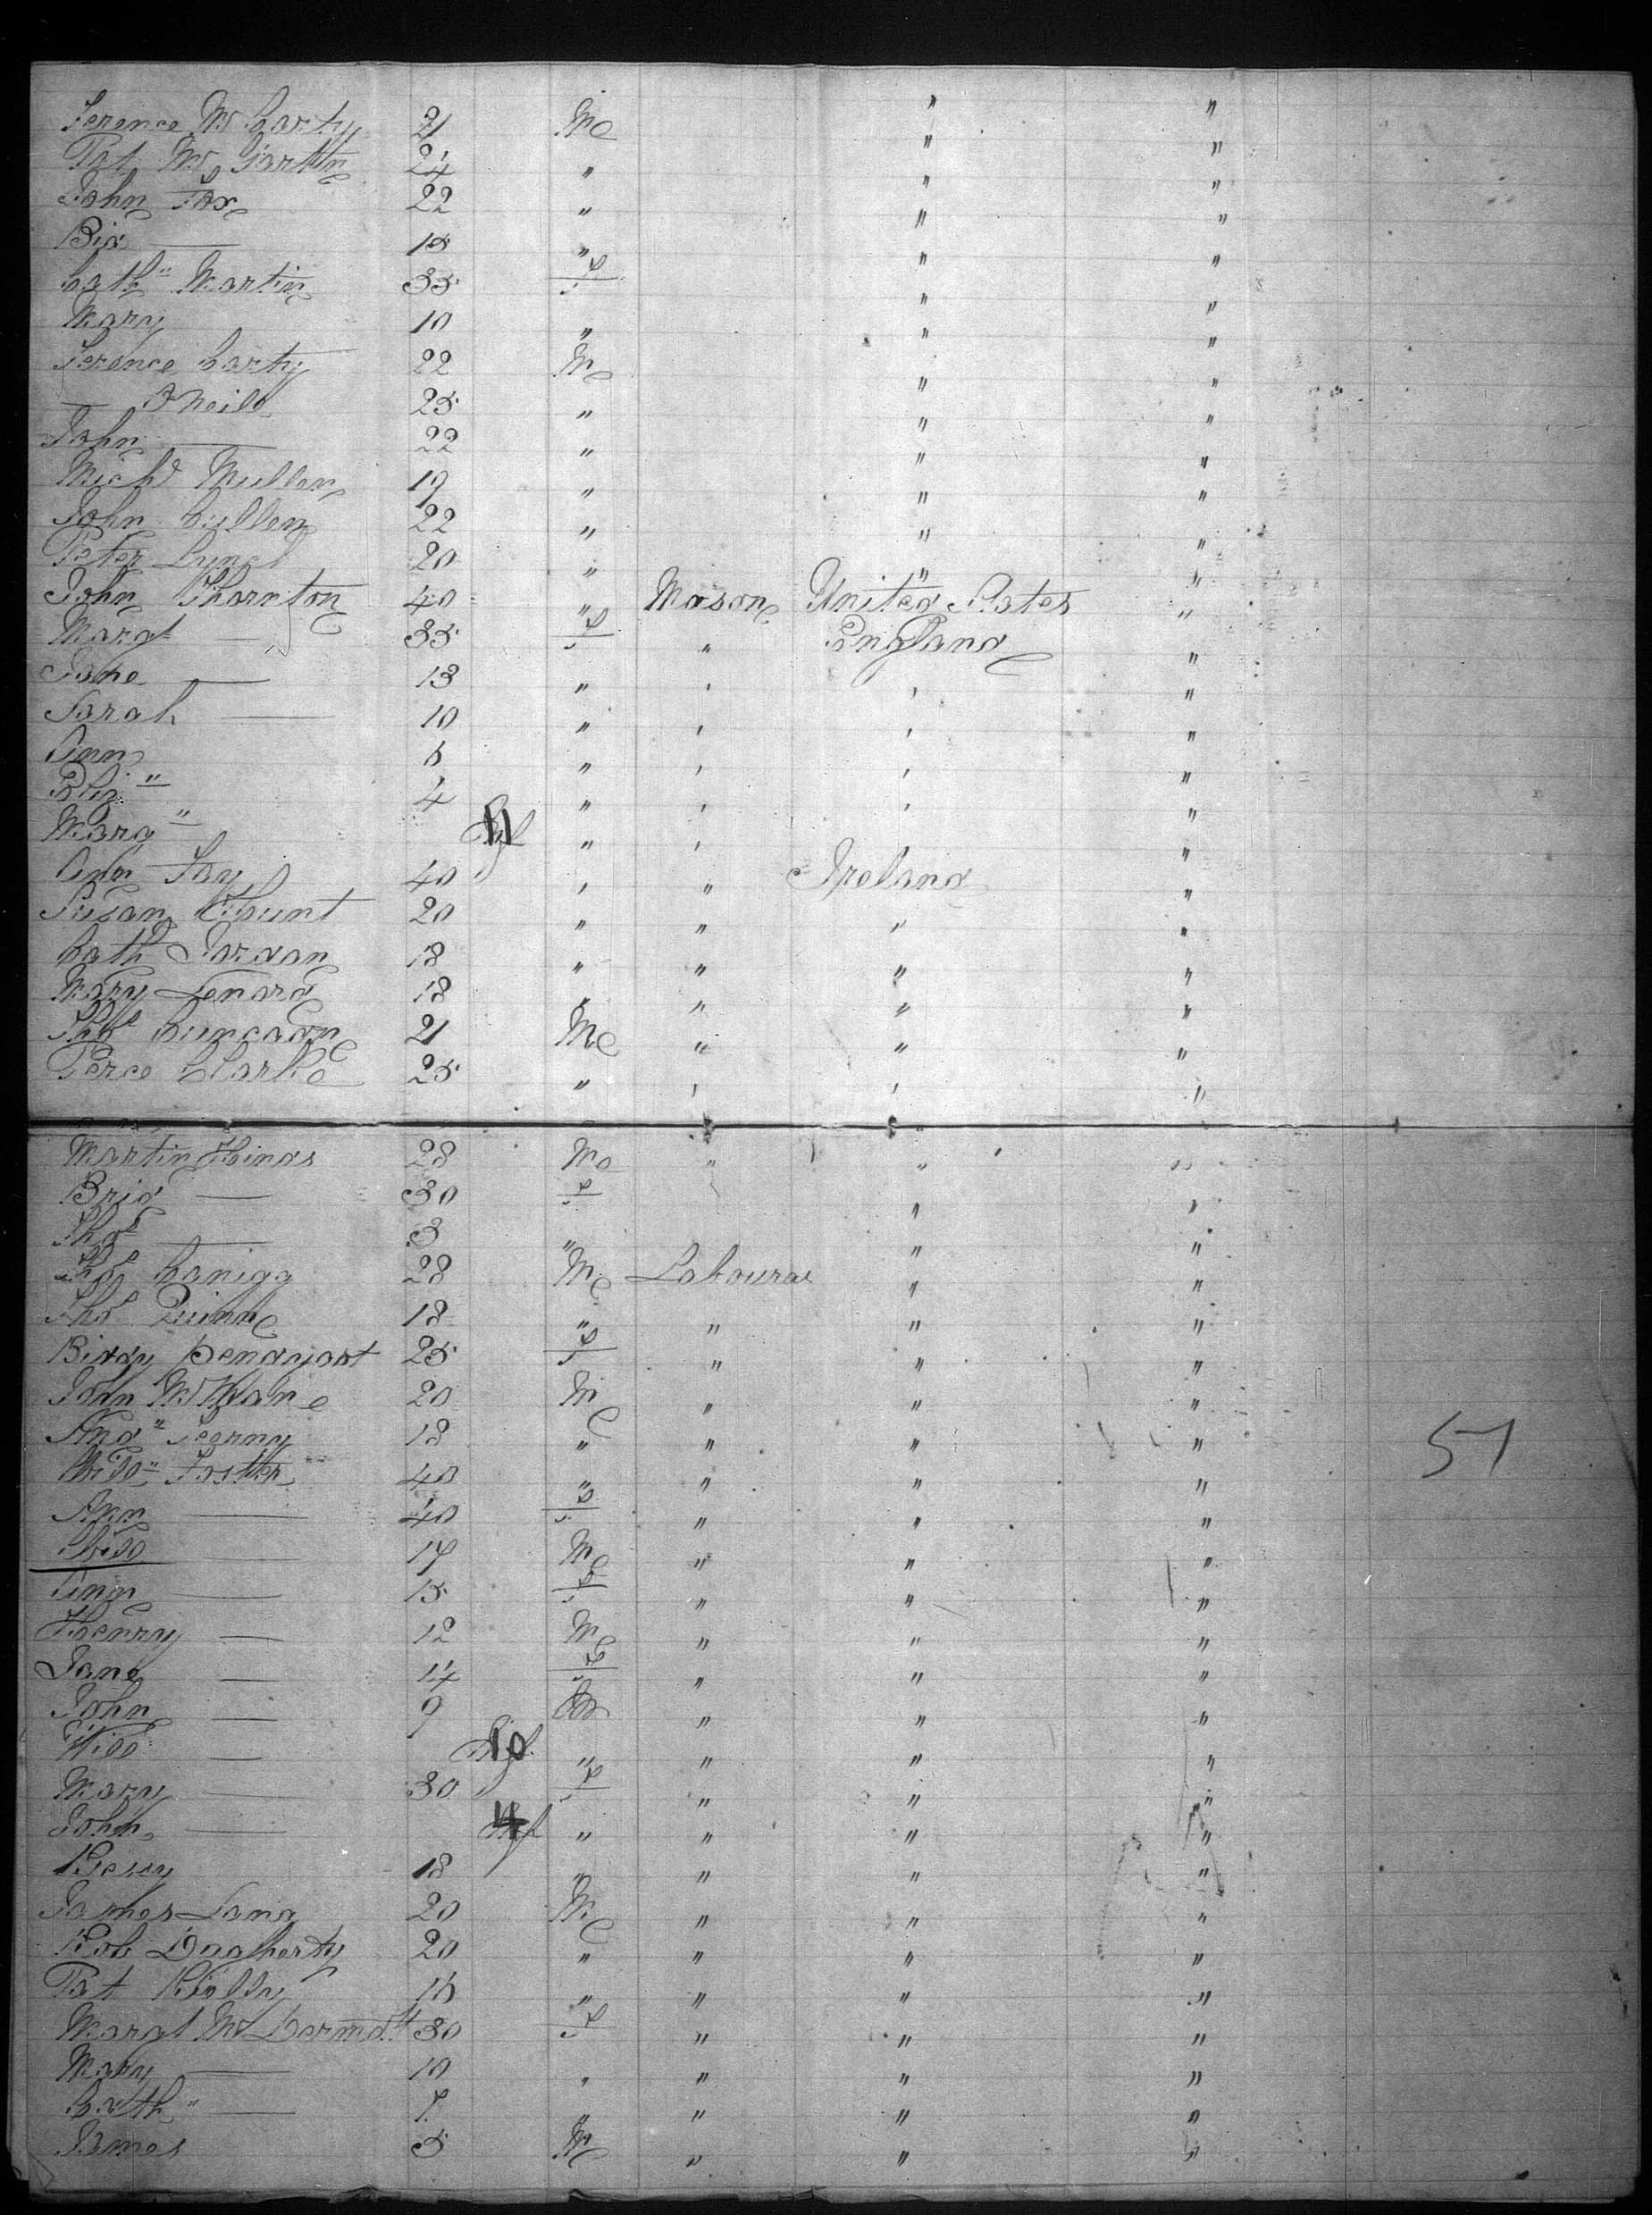 Terence McCarty 21 M " "
Pat McGartln 24 " " "
John Fox 22 " " "
Bid — 18 " " "
Cathn Martin 35 F " "
Mary 10 " " "
Terence Carty 22 M " "
— ONeill 25 " " "
John — 22 " " "
Michl Mullen 19 " " "
John Cullen 22 " " "
Peter Lynch 20 " " "
John Thornton 40 " Mason United States "
Margt — 35 F " England "
Jane — 13 " " " "
Sarah — 10 " " " "
Ann 6 " " " "
Eliz " 4 " " " "
Marg " 11 " "
Ann Fay 40 " " Ireland "
Susan Blunt 20 " " " "
Cath Jordan 18 " " " "
Mary Lenard 18 " " " "
Thos 21 M " " "
Perce Clarke 25 " " " "
Martin Hinds 28 M " " "
Brid — 30 F " "
Thos — 3 " " "
Thos Canigg 28 M Labourer " "
Thos Quinn 18 " " " "
Biddy 25 F " " "
John 20 M " " "
And 18 " " " "
Foster 40 " " " "
Ann — 40 F " " "
— 17 M " " "
Ann — 15 F " " "
Henry — 12 M " " "
Jane — 14 F " " "
John — 9 M " " "
Will — 10 " " " "
Mary — 30 F " " "
John — 4 " " " "
Bessy 18 " " " "
James Lang 20 M " " "
Rob Dogherty 20 " " " "
Pat Kielly 16 " " " "
Margt McDermott 30 F " " "
Mary — 10 " " " "
Cath " — 7 " " " "
James 5 M " " "
51